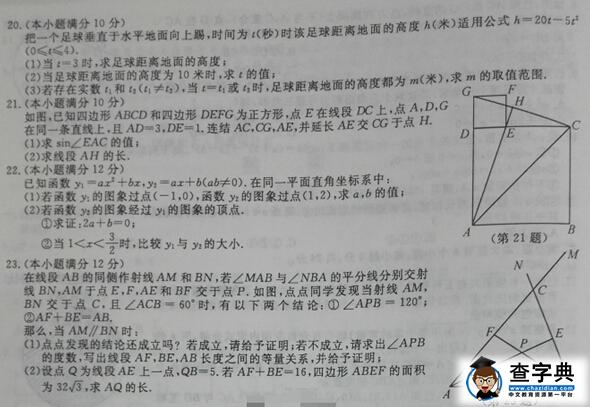 20.(本小题满分 10 分)
把一个足球垂直于水平地面向上踢,时间为 t(秒)时该足球距离地面的高度 h(米)适用公式 h=20t-5t²
(0≤t≤4).
(1)当 t=3 时,求足球距离地面的高度;
(2)当足球距离地面的高度为 10 米时,求 t 的值;
(3)若存在实数 t₁ 和 t₂(t₁≠t₂),当 t=t₁ 或 t₂ 时,足球距离地面的高度都为 m(米),求 m 的取值范围.
21.(本小题满分 10 分)
如图,已知四边形 ABCD 和四边形 DEFG 为正方形,点 E 在线段 DC 上,点 A,D,G
在同一条直线上,且 AD=3,DE=1.连结 AC,CG,AE,并延长 AE 交 CG 于点 H.
(1)求 sin∠EAC 的值;
(2)求线段 AH 的长.
22.(本小题满分 12 分)
已知函数 y₁=ax²+bx,y₂=ax+b(ab≠0).在同一平面直角坐标系中:
(1)若函数 y₁ 的图象过点(-1,0),函数 y₂ 的图象过点(1,2),求 a,b 的值;
(2)若函数 y₂ 的图象经过 y₁ 的图象的顶点.
①求证:2a+b=0;
②当 1<x<3/2 时,比较 y₁ 与 y₂ 的大小.
23.(本小题满分 12 分)
在线段 AB 的同侧作射线 AM 和 BN,若∠MAB 与∠NBA 的平分线分别交射
线 BN,AM 于点 E,F,AE 和 BF 交于点 P.如图,点点同学发现当射线 AM,
BN 交于点 C,且∠ACB=60°时,有以下两个结论:①∠APB=120°;
②AF+BE=AB.
那么,当 AM∥BN 时:
(1)点点发现的结论还成立吗?若成立,请给予证明;若不成立,请求出∠APB
的度数,写出线段 AF,BE,AB 长度之间的等量关系,并给予证明;
(2)设点 Q 为线段 AE 上一点,QB=5.若 AF+BE=16,四边形 ABEF 的面积
为 32√3,求 AQ 的长.
G
F
H
D
E
C
A
B
(第 21 题)
M
N
C
F
P
E
A
查字典
www.chazidian.com
中文教育资源第一平台